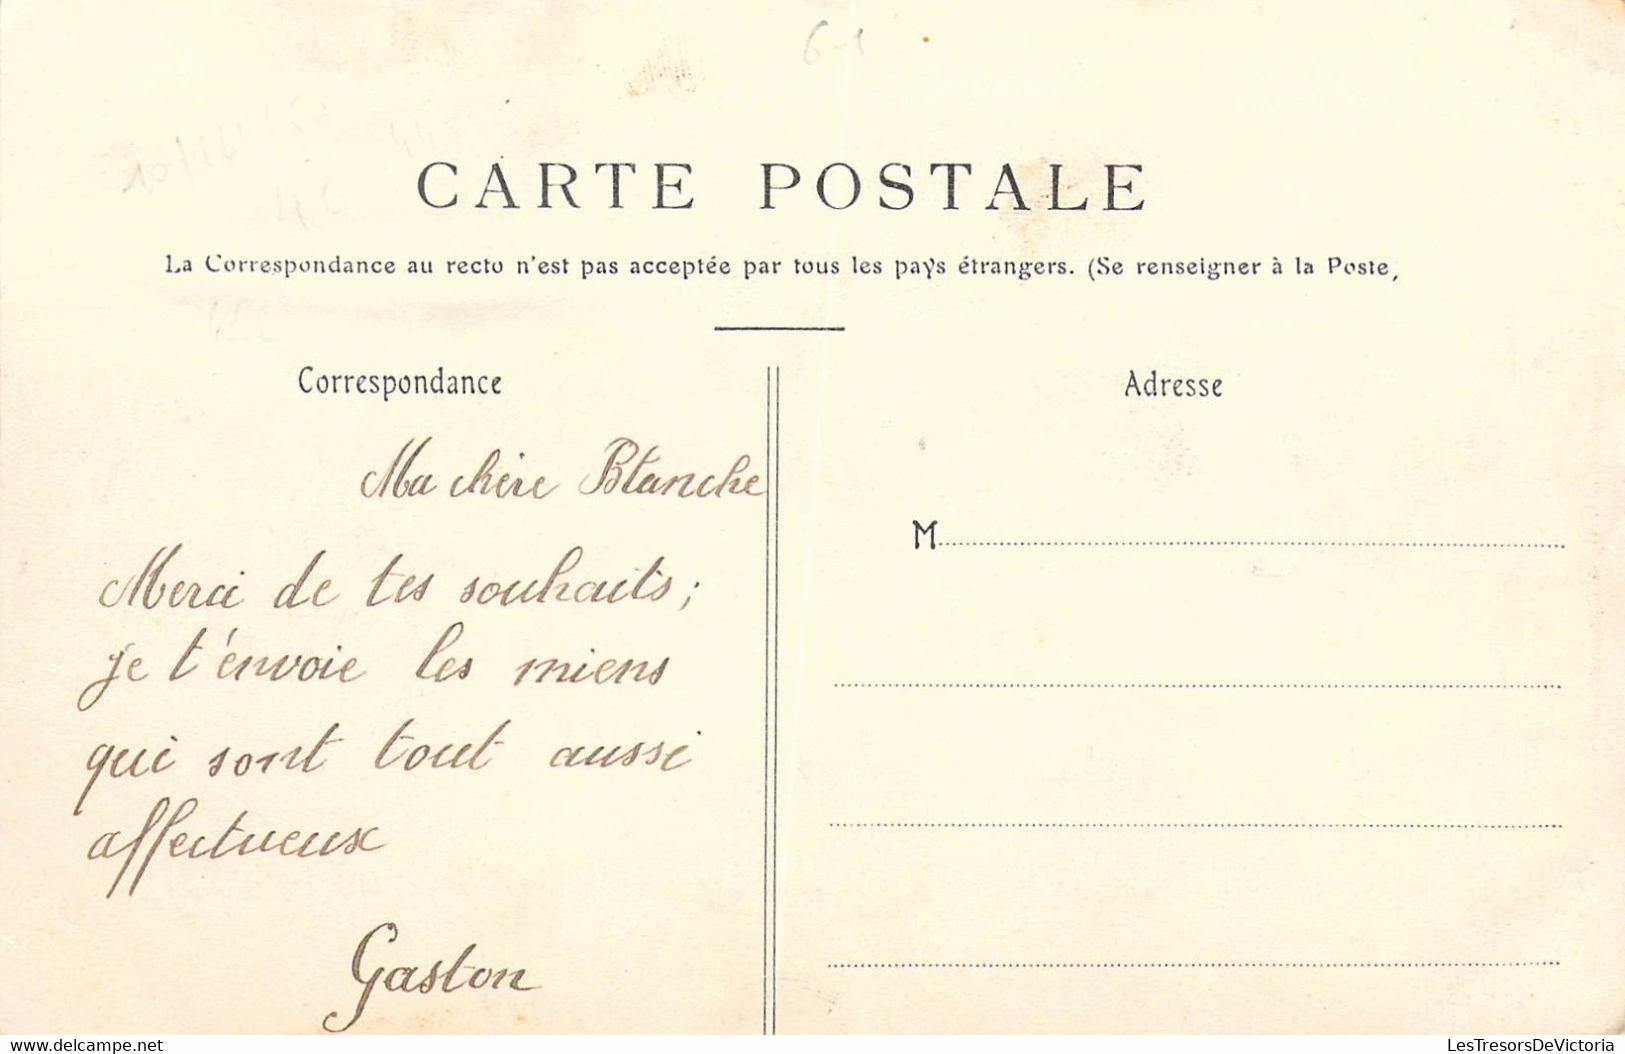 6-1
CARTE POSTALE
La Correspondance au recto n'est pas acceptée par tous les pays étrangers. (Se renseigner à la Poste,
Correspondance
Ma chère Blanche
Merci de tes souhaits;
je t'envoie les miens
qui sont tout aussi
affectueux
Gaston
Adresse
M
www.delcampe.net
LesTresorsDeVictoria